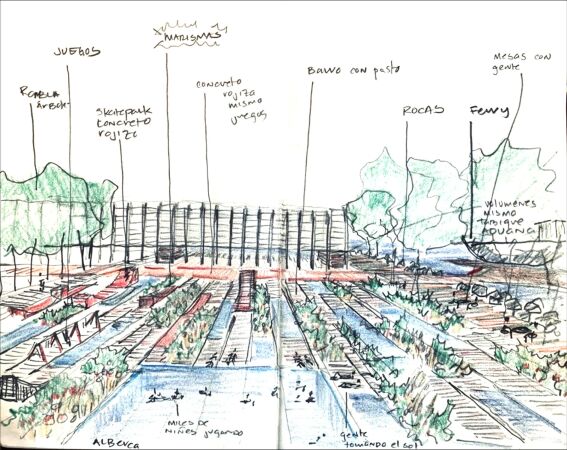 JUEGOS
MARISMAS
SKATEPARK
CONCRETO
ROJIZO
CONCRETO
ROJIZO
MISMO
JUEGOS
BARRO CON PASTO
MESAS CON
GENTE
ROCAS
FERRY
VOLUMENES
MISMO
TABIQUE
ADUANA
MILES DE
NIÑOS JUGANDO
GENTE
TOMANDO EL SOL
ALBERCA